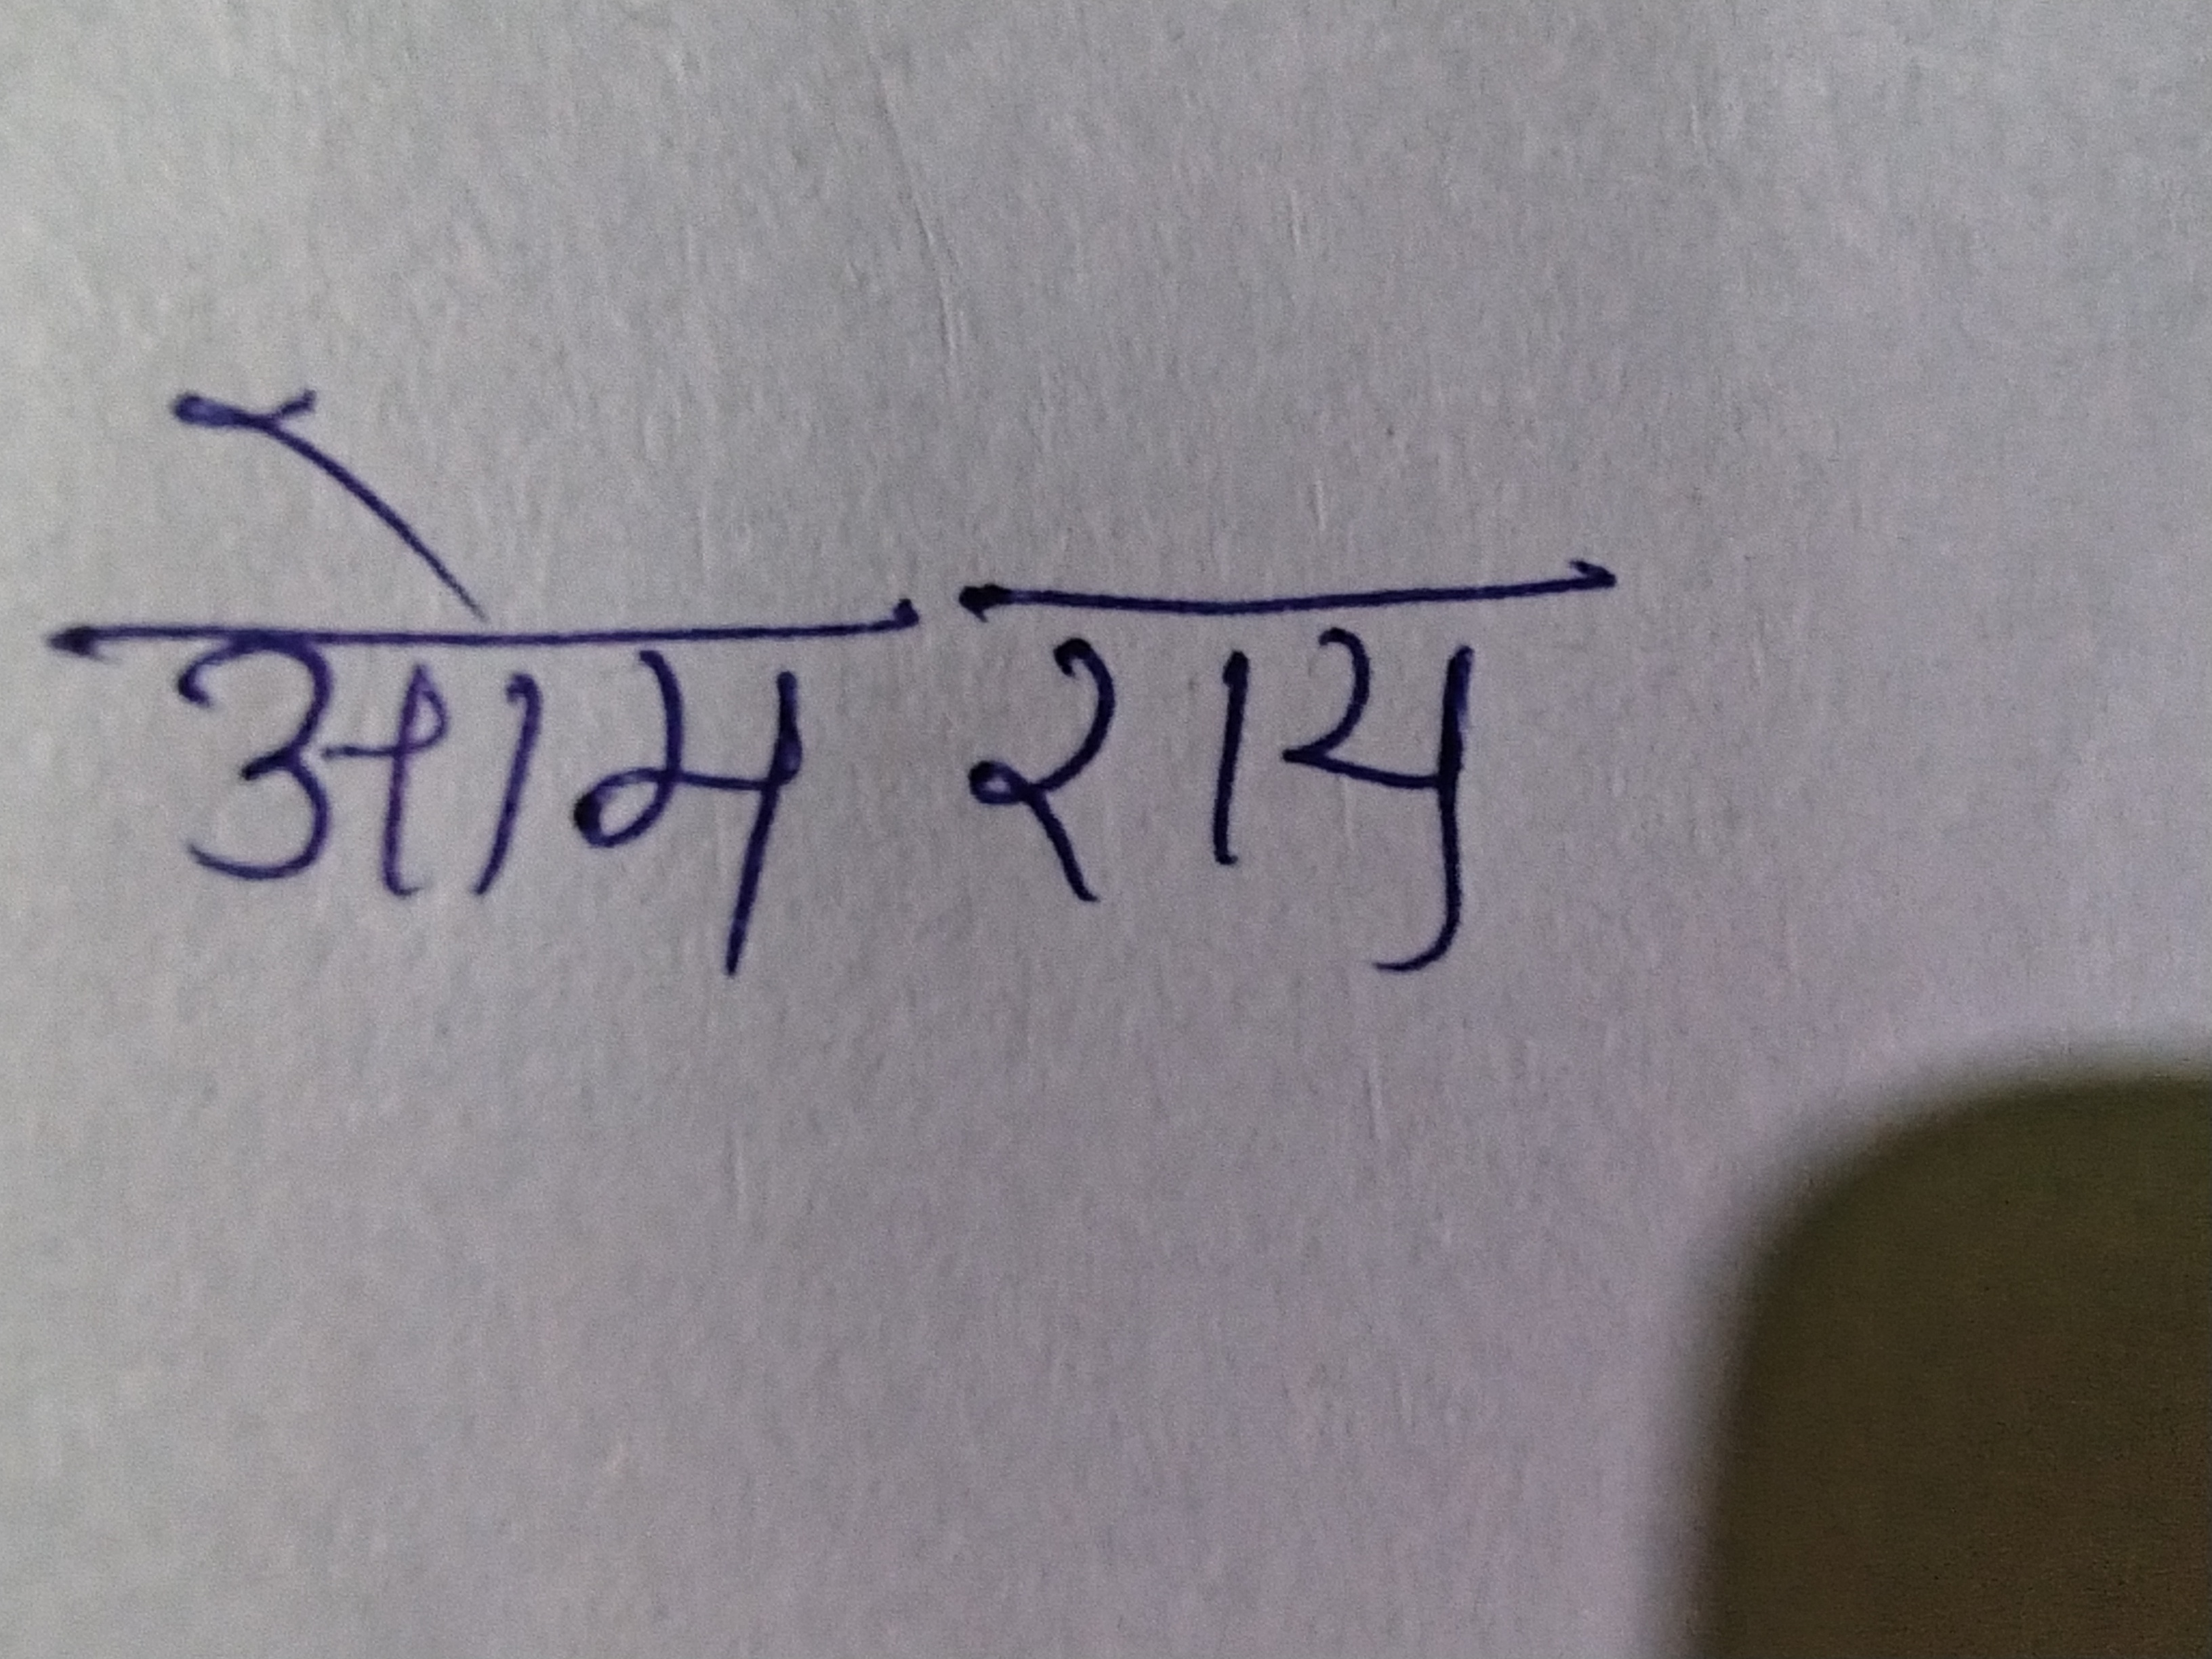 ओम राय